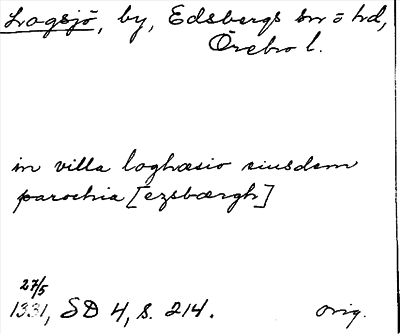 Logsjö, by, Edsbergs sn o hd,
Örebro l.
in villa loghæsio eiusdem
parochia [ezsbærgh]
27/5
1331, SD 4, s. 214. orig.